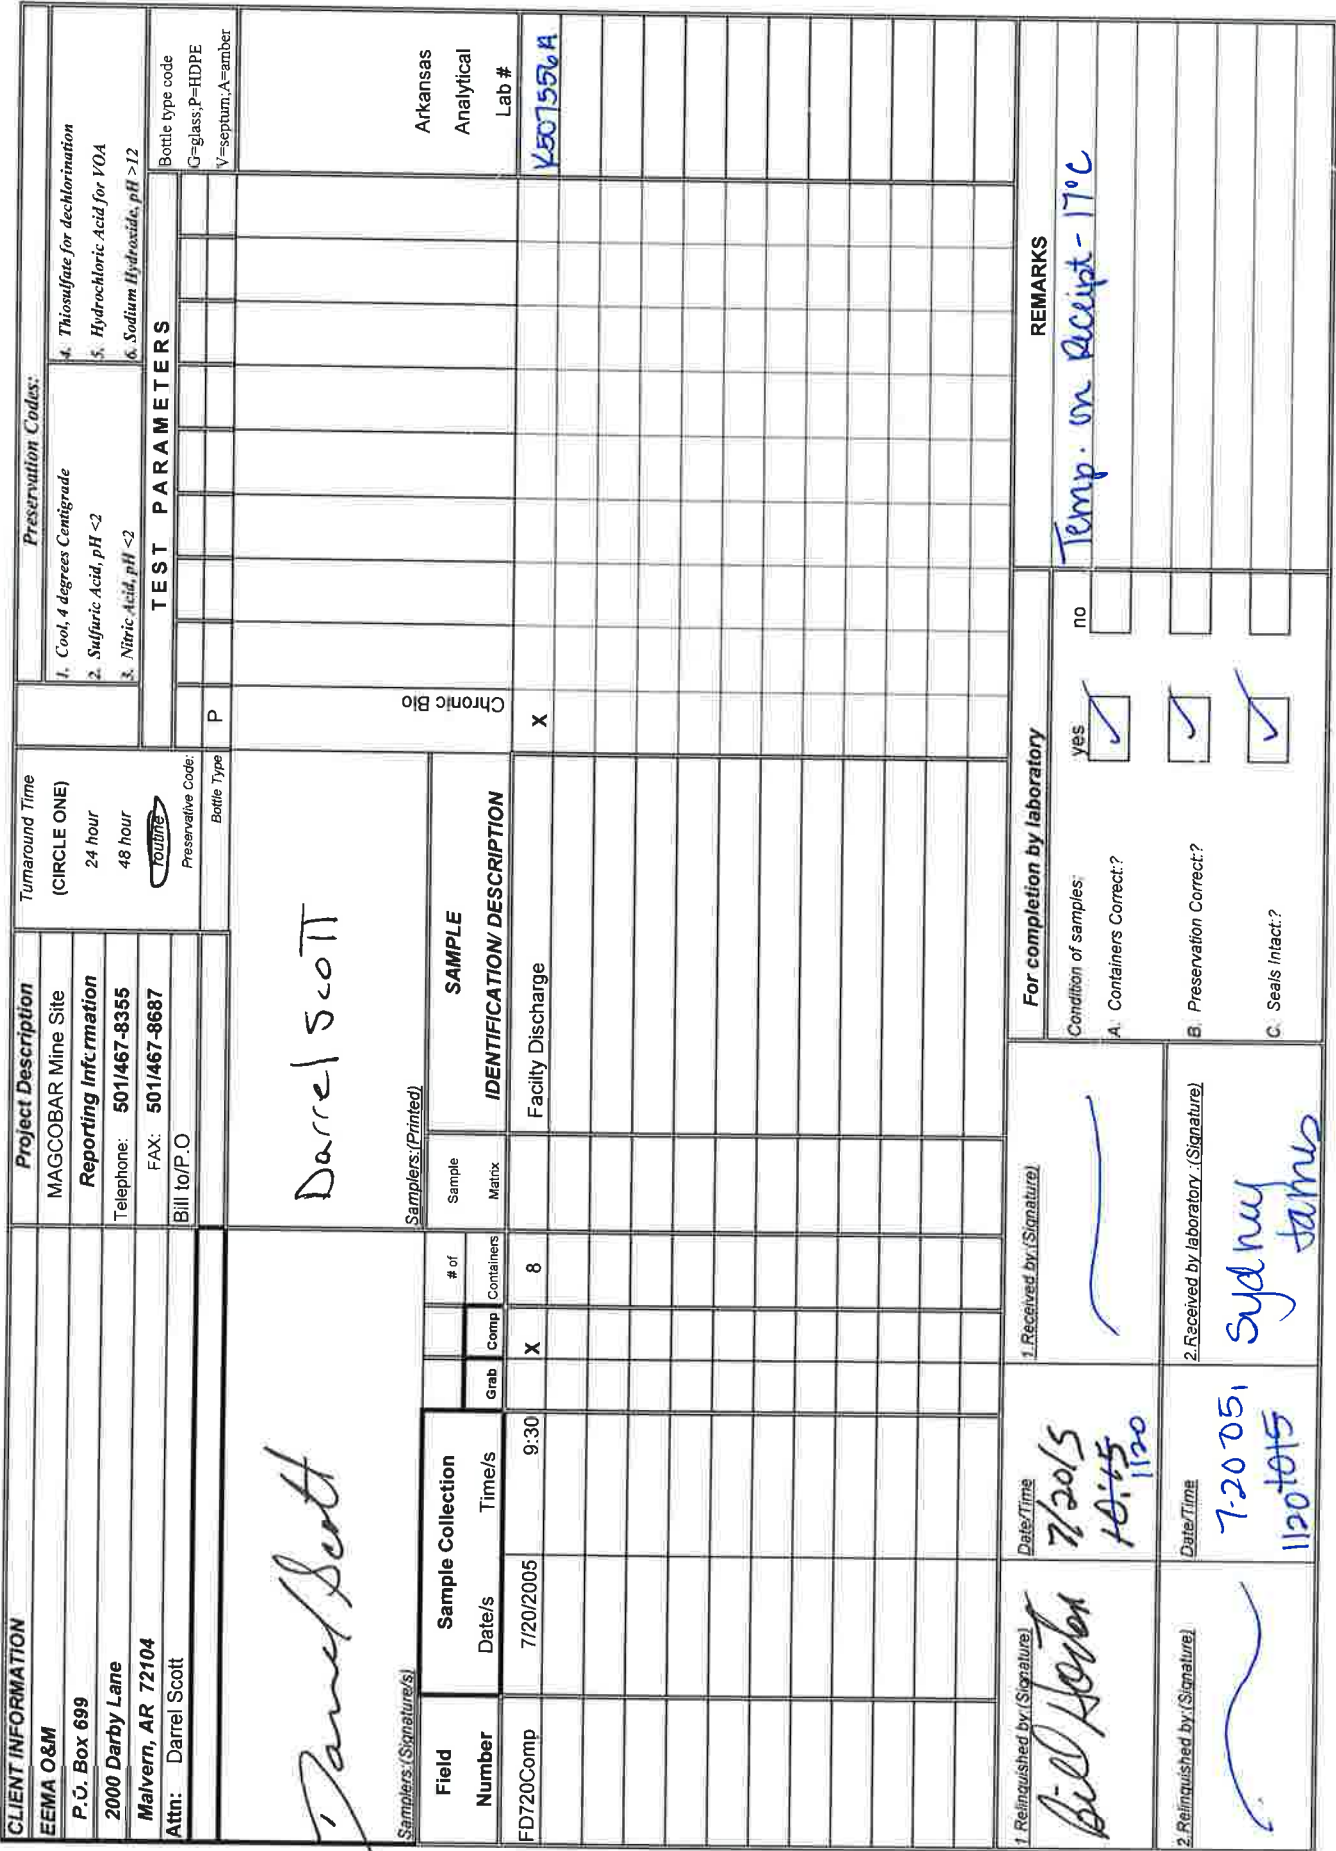 CLIENT INFORMATION
EEMA O&M
P.O. Box 699
2000 Darby Lane
Malvern, AR 72104
Attn: Darrel Scott
Project Description
MAGCOBAR Mine Site
Reporting Information
Telephone: 501/467-8355
FAX: 501/467-8687
Bill to/P.O
Turnaround Time
(CIRCLE ONE)
24 hour
48 hour
routine
Preservative Code:
Bottle Type
P
Preservation Codes:
1. Cool, 4 degrees Centigrade
2. Sulfuric Acid, pH <2
3. Nitric Acid, pH <2
4. Thiosulfate for dechlorination
5. Hydrochloric Acid for VOA
6. Sodium Hydroxide, pH >12
TEST PARAMETERS
Bottle type code
G=glass;P=HDPE
V=septum;A=amber
Darrel Scott
Samplers:(Signature/s)
Darrel Scott
Samplers:(Printed)
Chronic Bio
Arkansas
Analytical
Lab #
Field
Number
Sample Collection
Date/s
Time/s
Grab
Comp
# of
Containers
Sample
Matrix
SAMPLE
IDENTIFICATION/ DESCRIPTION
FD720Comp 7/20/2005 9:30 X 8 Facilty Discharge X K507556A
1 Relinquished by:(Signature)
Bill
Date/Time
7/20/5
10:15
1120
1.Received by:(Signature)
2.Relinquished by:(Signature)
Date/Time
7-20 05,
1120 1015
2.Received by laboratory :(Signature)
Sydney
James
For completion by laboratory
Condition of samples:
yes no
A. Containers Correct:?
B. Preservation Correct:?
C. Seals Intact:?
REMARKS
Temp. on Receipt - 17°C